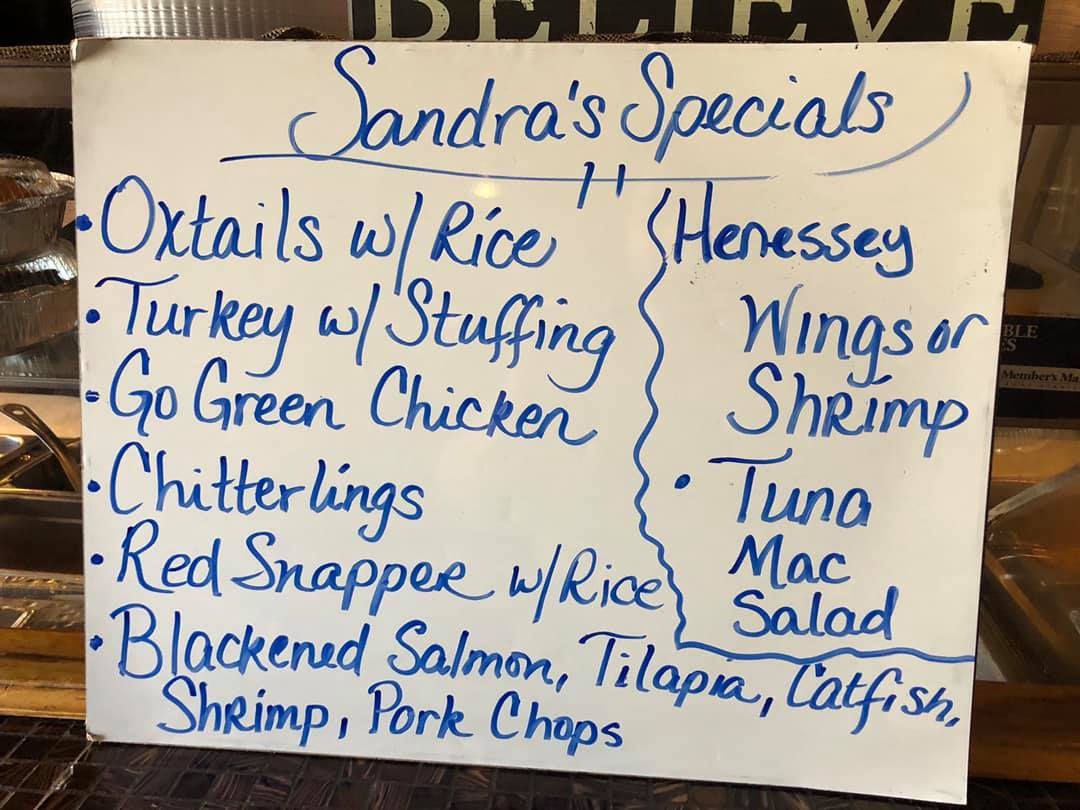 BELIEVE
Sandra's Specials
• Oxtails w/ Rice
• Turkey w/ Stuffing
• Go Green Chicken
• Chitterlings
• Red Snapper w/Rice
• Blackened Salmon, Tilapia, Catfish,
Shrimp, Pork Chops
Henessey
Wings or
Shrimp
• Tuna
Mac
Salad
BLE
ES
Member's Ma